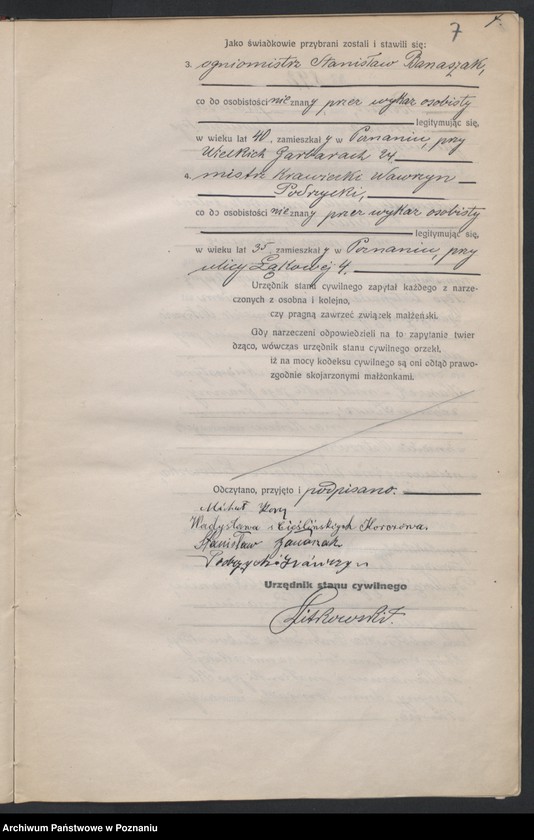 7
Jako świadkowie przybrani zostali i stawili się:
3. ogniomistrz Stanisław Banaszak,
co do osobistości nie znany przez wykaz osobisty
legitymując się,
w wieku lat 40, zamieszkały w Poznaniu, przy
Wielkich Garbarach 24.
4. mistrz krawiecki Wawrzyn
Podrzycki,
co do osobistości nie znany przez wykaz osobisty
legitymując się,
w wieku lat 35, zamieszkały w Poznaniu, przy
ulicy Łąkowej 4.
Urzędnik stanu cywilnego zapytał każdego z narze-
czonych z osobna i kolejno,
czy pragną zawrzeć związek małżeński.
Gdy narzeczeni odpowiedzieli na to zapytanie twier
dząco, wówczas urzędnik stanu cywilnego orzekł,
iż na mocy kodeksu cywilnego są oni odtąd prawo-
zgodnie skojarzonymi małżonkami.
Odczytano, przyjęto i podpisano.
Michał
Władysława z Cieślińskich
Stanisław Banaszak
Wawrzyn
Urzędnik stanu cywilnego
Witkowski.
Archiwum Państwowe w Poznaniu